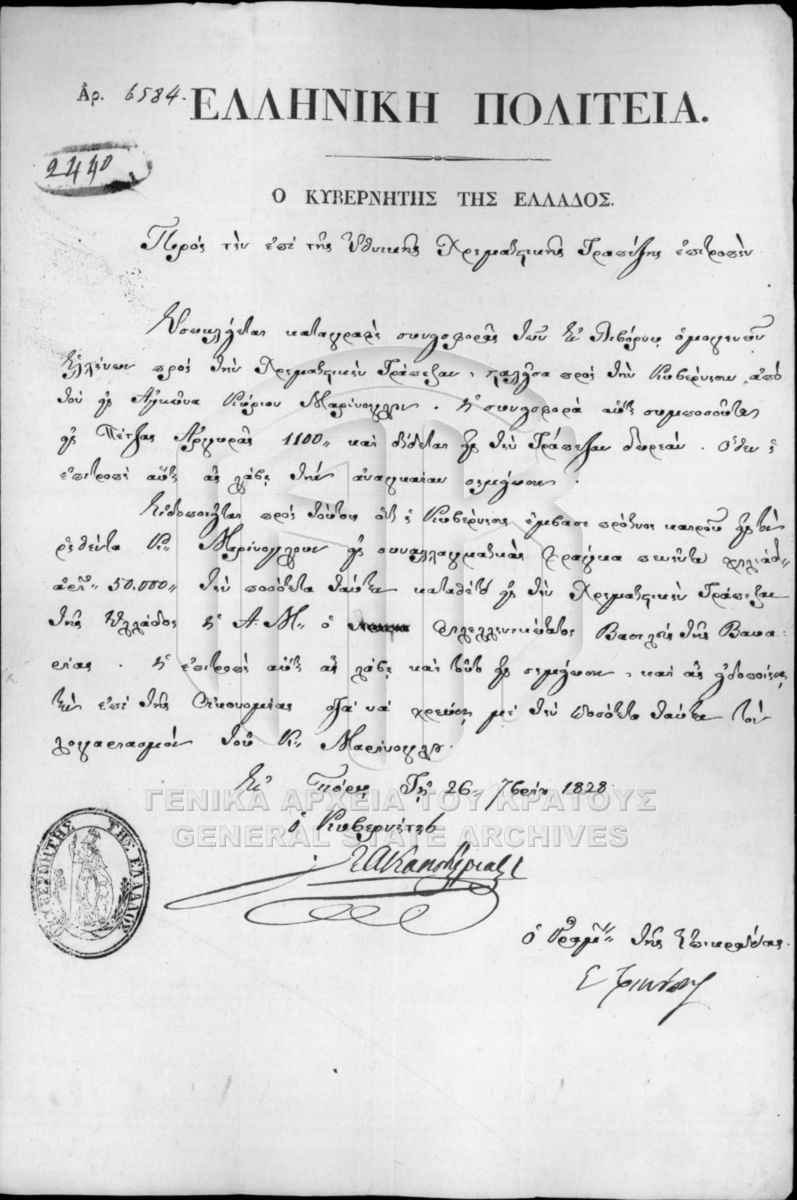 Ἀρ. 6584.
ΕΛΛΗΝΙΚΗ ΠΟΛΙΤΕΙΑ.
2440
Ο ΚΥΒΕΡΝΗΤΗΣ ΤΗΣ ΕΛΛΑΔΟΣ.
Πρὸς τὴν ἐπὶ τῆς Ἐθνικῆς Χρηματιστικῆς Τραπέζης ἐπιτροπὴν
Ἐσωκλείεται καταγραφὴ συνεισφορᾶς τῶν ἐν Λιβόρνῳ ὁμογενῶν
Ἑλλήνων πρὸς τὴν Χρηματιστικὴν Τράπεζαν, πρὸς τὴν Κυβέρνησιν ἀπὸ
τὸν εἰς Ἀγκῶνα Κύριον Μαρίνογλου. Ἡ συνεισφορὰ αὕτη συμποσοῦται
εἰς Πέτζας Ἀργυρᾶς 1100" καὶ δίδεται εἰς τὴν Τράπεζαν δωρεάν. Ὅθεν ἡ
ἐπιτροπὴ αὕτη ἂς λάβῃ τὴν ἀναγκαίαν σημείωσιν.
Εἰδοποιεῖται πρὸς τούτοις ὅτι ἡ Κυβέρνησις ἔμβασε πρὸ καιροῦ εἰς τὸν
ῥηθέντα Κ. Μαρίνογλουν εἰς συναλλαγματικὰς φράγκα πενῆντα χιλιάδ
ἀριθ. 50.000" τὴν ποσότητα ταύτην καταθέτει εἰς τὴν Χρηματιστικὴν Τράπεζαν
τῆς Ἑλλάδος ἡ Α.Μ. ὁ φιλελληνικώτατος Βασιλεὺς τῆς Βαυα-
ρίας. Ἡ ἐπιτροπὴ αὕτη ἂς λάβῃ καὶ τοῦτο εἰς σημείωσιν, καὶ ἂς εἰδοποιήσῃ
τὴν ἐπὶ τῆς Οἰκονομίας νὰ χρεώσῃ μὲ τὴν ποσότητα ταύτην τὸν
λογαριασμὸν τοῦ Κ. Μαρίνογλου.
Ἐν Πόρῳ τῇ 26 7βρίου 1828
ὁ Κυβερνήτης
Ι.Α.Καποδίστριας
ὁ Γραμ. τῆς Ἐπικρατείας.
Σ. Τρικούπης
Ο ΚΥΒΕΡΝΗΤΗΣ ΤΗΣ ΕΛΛΑΔΟΣ
ΓΕΝΙΚΑ ΑΡΧΕΙΑ ΤΟΥ ΚΡΑΤΟΥΣ
GENERAL STATE ARCHIVES